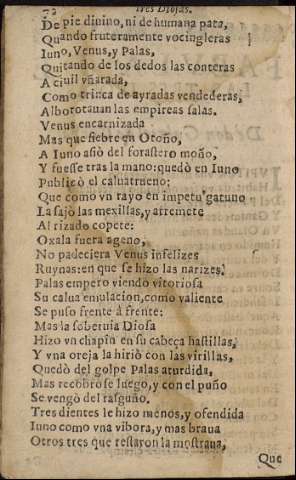 72 Tres Diosas.
De pie diuino, ni de humana pata,
Quando fruteramente vocingleras
Iuno, Venus, y Palas,
Quitando de los dedos las conteras
A ciuil vñarada,
Como trinca de ayradas vendederas,
Alborotauan las empireas salas.
Venus encarnizada
Mas que fiebre en Otoño,
A Iuno asiò del forastero moño,
Y fuesse tras la mano: quedò en Iuno
Publicò el caluatrueno:
Que como vn rayo en impetu gatuno
La sajò las mexillas, y arremete
Al rizado copete:
Oxala fuera ageno,
No padeciera Venus infelizes
Ruynas: en que se hizo las narizes.
Palas empero viendo vitoriosa
Su calua emulacion, como valiente
Se puso frente à frente:
Mas la soberuia Diosa
Hizo vn chapin en su cabeça hastillas,
Y vna oreja la hiriò con las virillas,
Quedò del golpe Palas aturdida,
Mas recobròse luego, y con el puño
Se vengò del rasguño.
Tres dientes le hizo menos, y ofendida
Iuno como vna viuora, y mas braua
Otros tres que restaron la mostraua,
Que